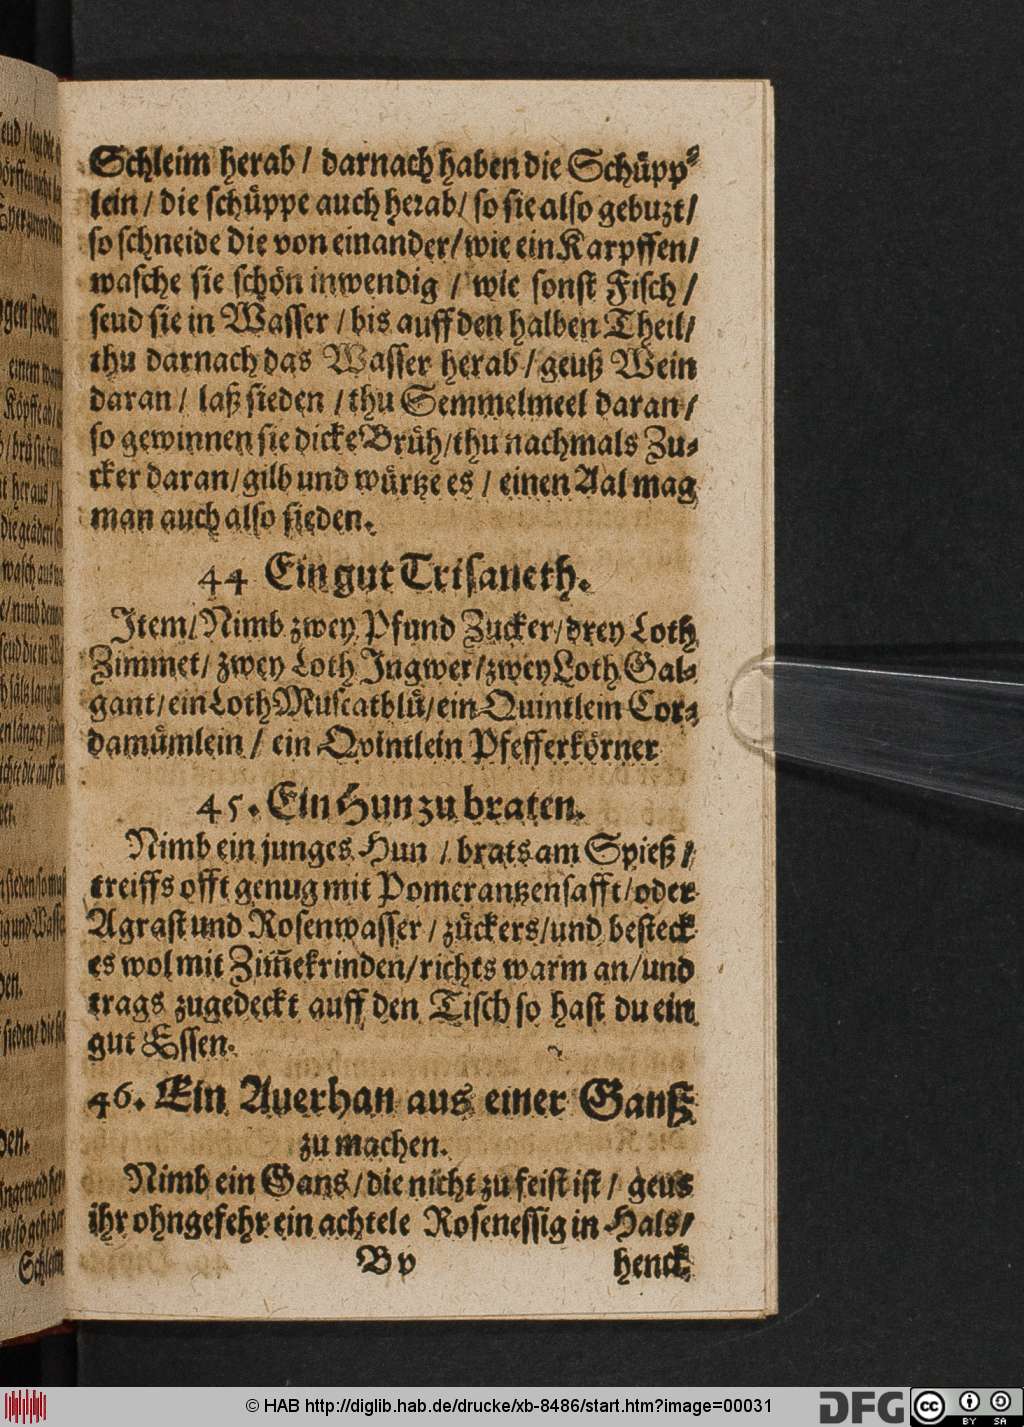 Schleim herab / darnach haben die Schüpp⸗
lein / die schüppe auch herab / so sie also gebuzt /
so schneide die von einander / wie ein Karpffen /
wasche sie schön inwendig / wie sonst Fisch /
seud sie in Wasser / bis auff den halben Theil /
thu darnach das Wasser herab / geuß Wein
daran / laß sieden / thu Semmelmeel daran /
so gewinnen sie dicke Brüh / thu nachmals Zu⸗
cker daran / gilb und würtze es / einen Aal mag
man auch also sieden.
44 Ein gut Trisaneth.
Item / Nimb zwey Pfund Zucker / drey Loth
Zimmet / zwey Loth Ingwer / zwey Loth Gal⸗
gant / ein Loth Muscatblü / ein Quintlein Cor⸗
damümlein / ein Qvintlein Pfefferkörner
45. Ein Hun zu braten.
Nimb ein junges Hun / brats am Spieß /
treiffs offt genug mit Pomerantzensafft / oder
Agrast und Rosenwasser / zückers / und besteck
es wol mit Zim̃ekrinden / richts warm an / und
trags zugedeckt auff den Tisch so hast du ein
gut Essen.
46. Ein Auerhan aus einer Ganß
zu machen.
Nimb ein Gans / die nicht zu feist ist / geus
ihr ohngefehr ein achtele Rosenessig in Hals /
B v henck
© HAB http://diglib.hab.de/drucke/xb-8486/start.htm?image=00031
DFG
cc BY SA